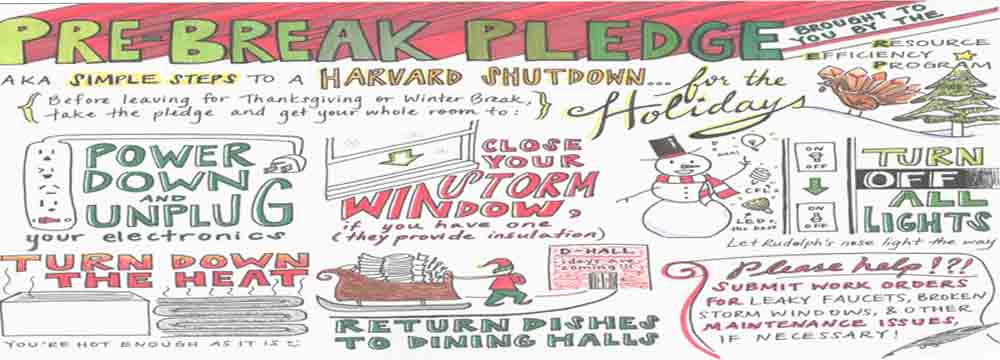 PRE-BREAK PLEDGE
BROUGHT TO
YOU BY THE
RESOURCE
EFFICIENCY
PROGRAM
AKA SIMPLE STEPS TO A HARVARD SHUTDOWN... for the
Holidays
{ Before leaving for Thanksgiving or Winter Break, }
take the pledge and get your whole room to:
POWER
DOWN
AND
UNPLUG
your electronics
CLOSE
YOUR
STORM
WINDOW,
if you have one
(they provide insulation)
CFLs
LEDs
ON
OFF
ON
OFF
TURN
OFF
ALL
LIGHTS
Let Rudolph's nose light the way
TURN DOWN
THE HEAT
YOU'RE HOT ENOUGH AS IT IS
D-HALL
days are
coming!!!
RETURN DISHES
TO DINING HALLS
Please help!?!
SUBMIT WORK ORDERS
FOR LEAKY FAUCETS, BROKEN
STORM WINDOWS, & OTHER
MAINTENANCE ISSUES,
IF NECESSARY!